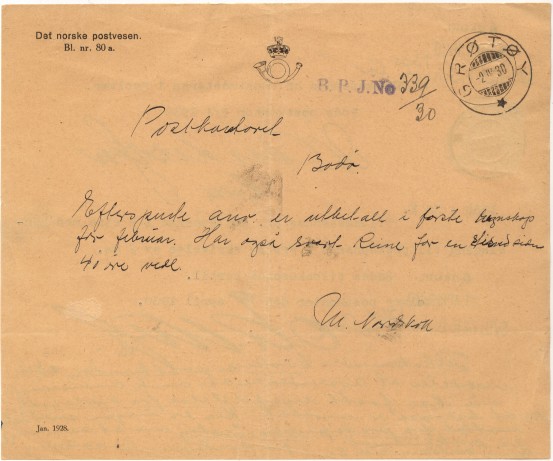 Det norske postvesen.
Bl. nr. 80 a.
GRØTØY
-2 IV 30
B. P. J. No 339/30
Postkontoret
Bodø.
Efterspurte anv. er utbetalt i første regnskap
for februar. Har også svart Reine for en
41 øre vedl.
M. Nordskott
Jan. 1928.